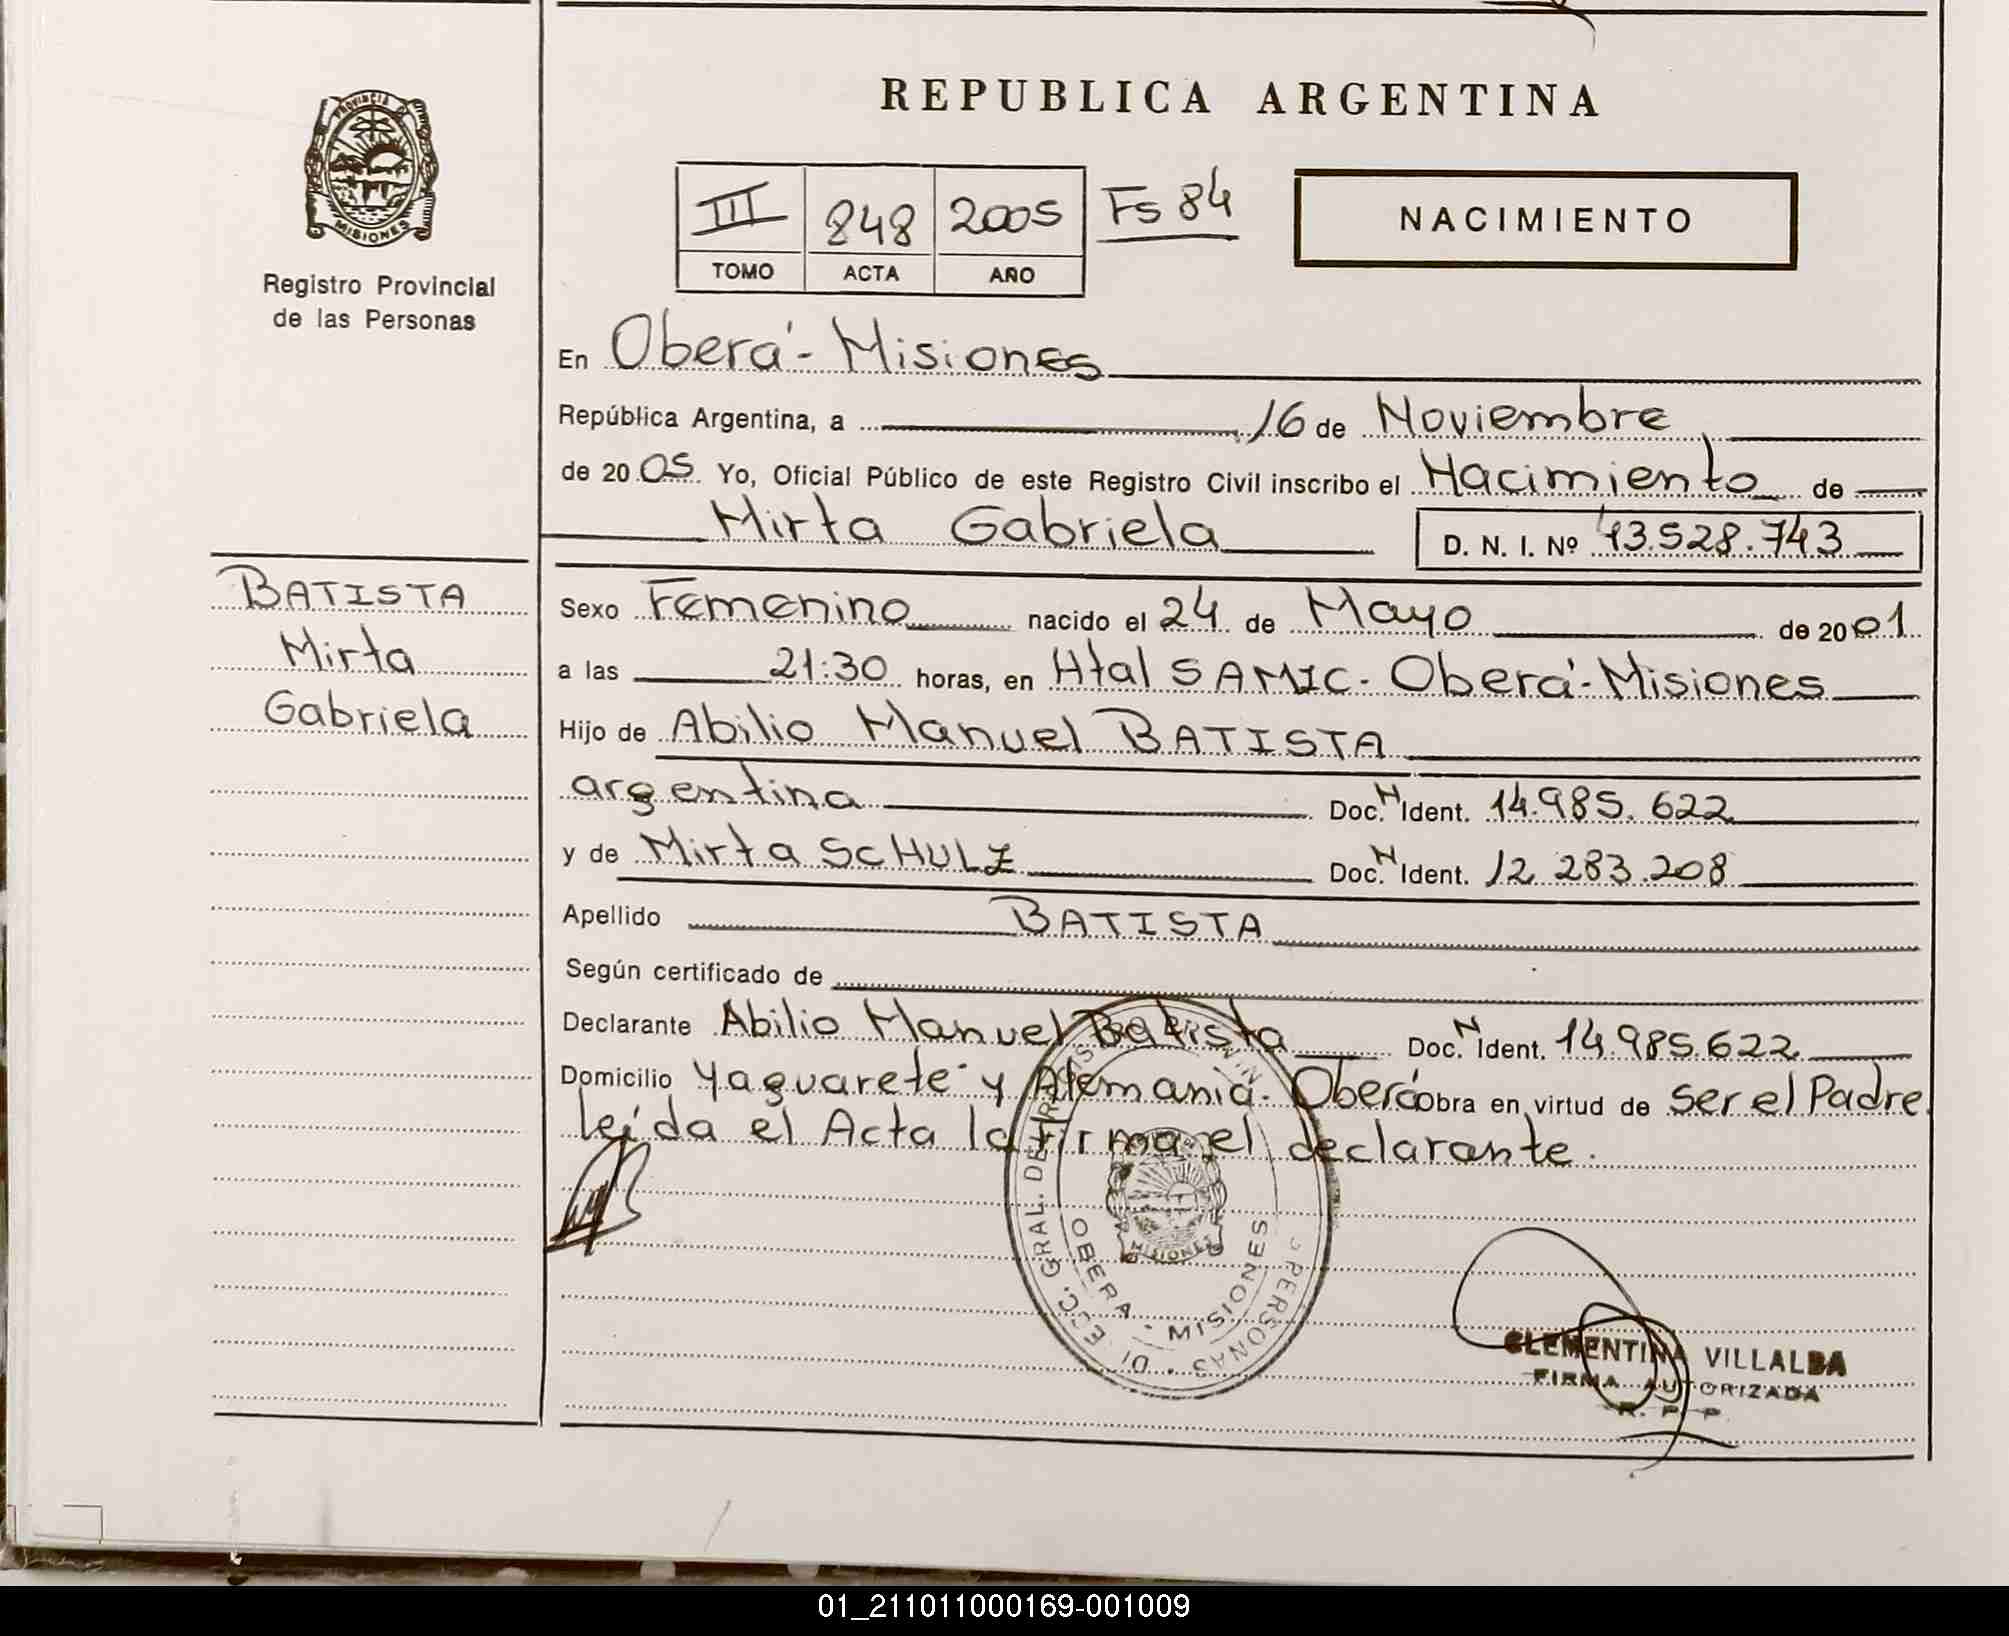 REPUBLICA ARGENTINA
PROVINCIA DE MISIONES
Registro Provincial
de las Personas
III 848 2005 Fs 84
TOMO ACTA AÑO
NACIMIENTO
En Oberá - Misiones
República Argentina, a 16 de Noviembre
de 2005. Yo, Oficial Público de este Registro Civil inscribo el Nacimiento de
Mirta Gabriela D. N. I. Nº 43.528.743
BATISTA
Mirta
Gabriela
Sexo Femenino nacido el 24 de Mayo de 2001
a las 21:30 horas, en Htal SAMIC. Oberá - Misiones
Hijo de Abilio Manuel BATISTA
argentina Doc. N Ident. 14.985.622
y de Mirta SCHULZ Doc. N Ident. 12.283.208
Apellido BATISTA
Según certificado de
Declarante Abilio Manuel Batista Doc. N Ident. 14.985.622
Domicilio Yaguareté y Alemania. Oberá obra en virtud de ser el Padre.
Leída el Acta la firma el declarante.
OBERA - MISIONES
MISIONES
CLEMENTINA VILLALBA
FIRMA AUTORIZADA
R. P. P.
01_211011000169-001009